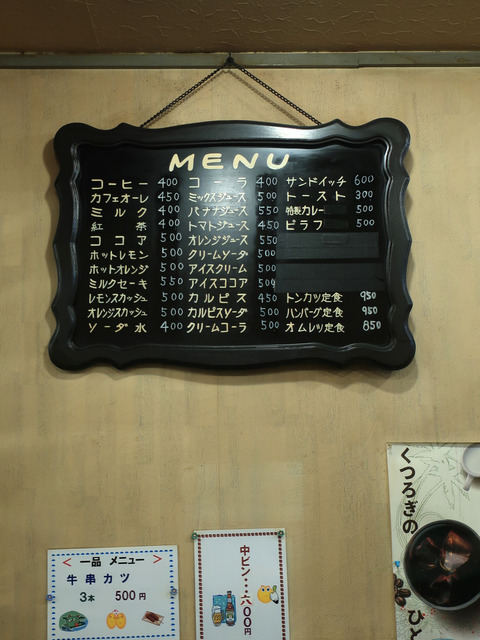 MENU
コーヒー 400
カフェオーレ 450
ミルク 400
紅茶 400
ココア 500
ホットレモン 500
ホットオレンジ 500
ミルクセーキ 550
レモンスカッシュ 500
オレンジスカッシュ 500
ソーダ水 400
コーラ 400
ミックスジュース 500
バナナジュース 550
トマトジュース 450
オレンジジュース 550
クリームソーダ 500
アイスクリーム 500
アイスココア 500
カルピス 450
カルピスソーダ 500
クリームコーラ 500
サンドイッチ 600
トースト 300
特製カレー 500
ピラフ 500
トンカツ定食 950
ハンバーグ定食 950
オムレツ定食 850
<一品 メニュー>
牛串カツ
3本 500円
中ビン・・六00円
くつろぎの
ひと